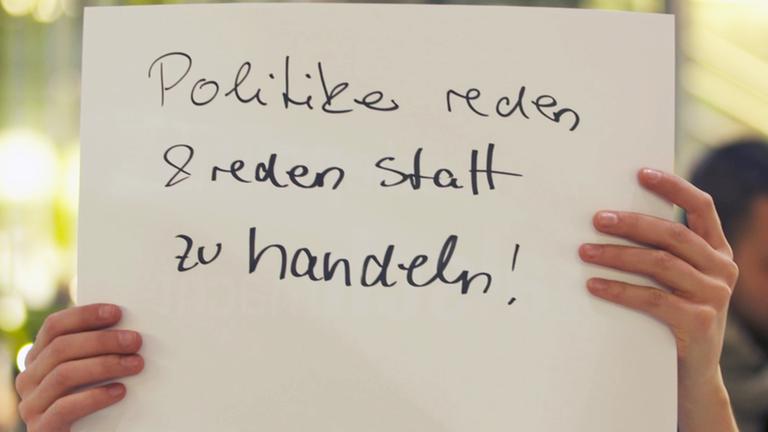 Politiker reden
& reden statt
zu handeln!